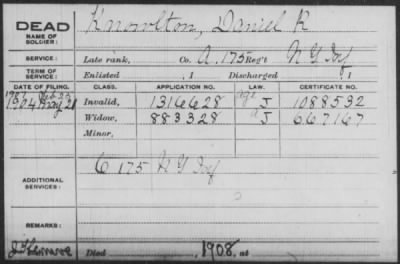 DEAD Knowlton, Daniel R
NAME OF SOLDIER:
SERVICE: Late rank, Co. A, 175 Reg't N Y Inf
TERM OF SERVICE: Enlisted , 1 Discharged , 1
DATE OF FILING. CLASS. APPLICATION NO. LAW. CERTIFICATE NO.
1904 May 21 Invalid, 1316628 age J 1088532
Widow, 883328 J 667167
Minor,
ADDITIONAL SERVICES: C 175 N Y Inf
REMARKS:
Died , 1908, at